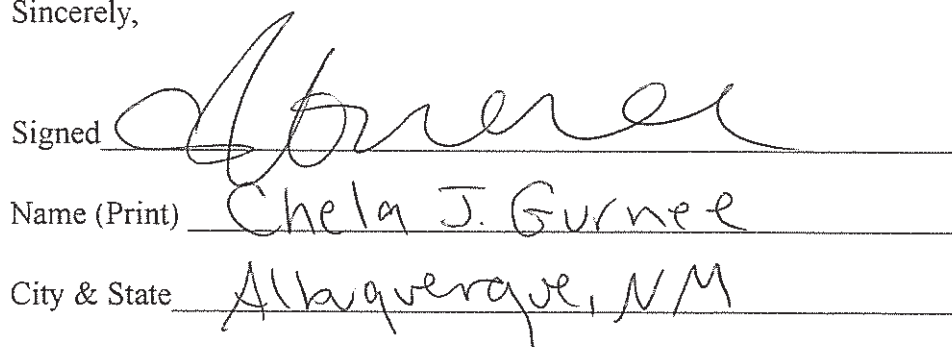 Sincerely,
Signed
Name (Print) Chela J. Gurnee
City & State Albuquerque, NM